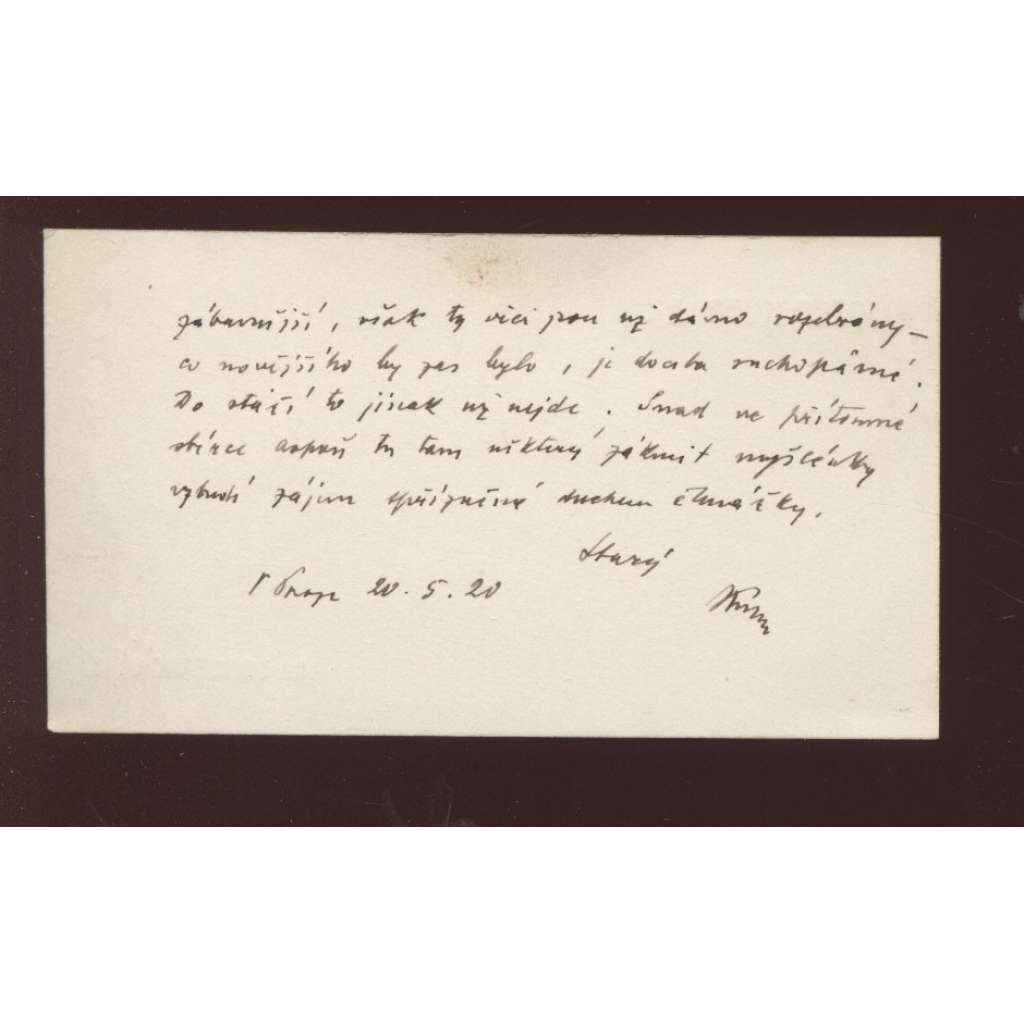 zábavnější, však ty věci jsou už dávno rozebrány –
co novějšího by zas bylo, je docela
Do stáří to jinak už nejde. Snad ve přítomné
sbírce aspoň tu tam některý zákmit myšlénky
vzbudí zájem spřízněné duchem čtenářky.
Starý
V Praze 20. 5. 20